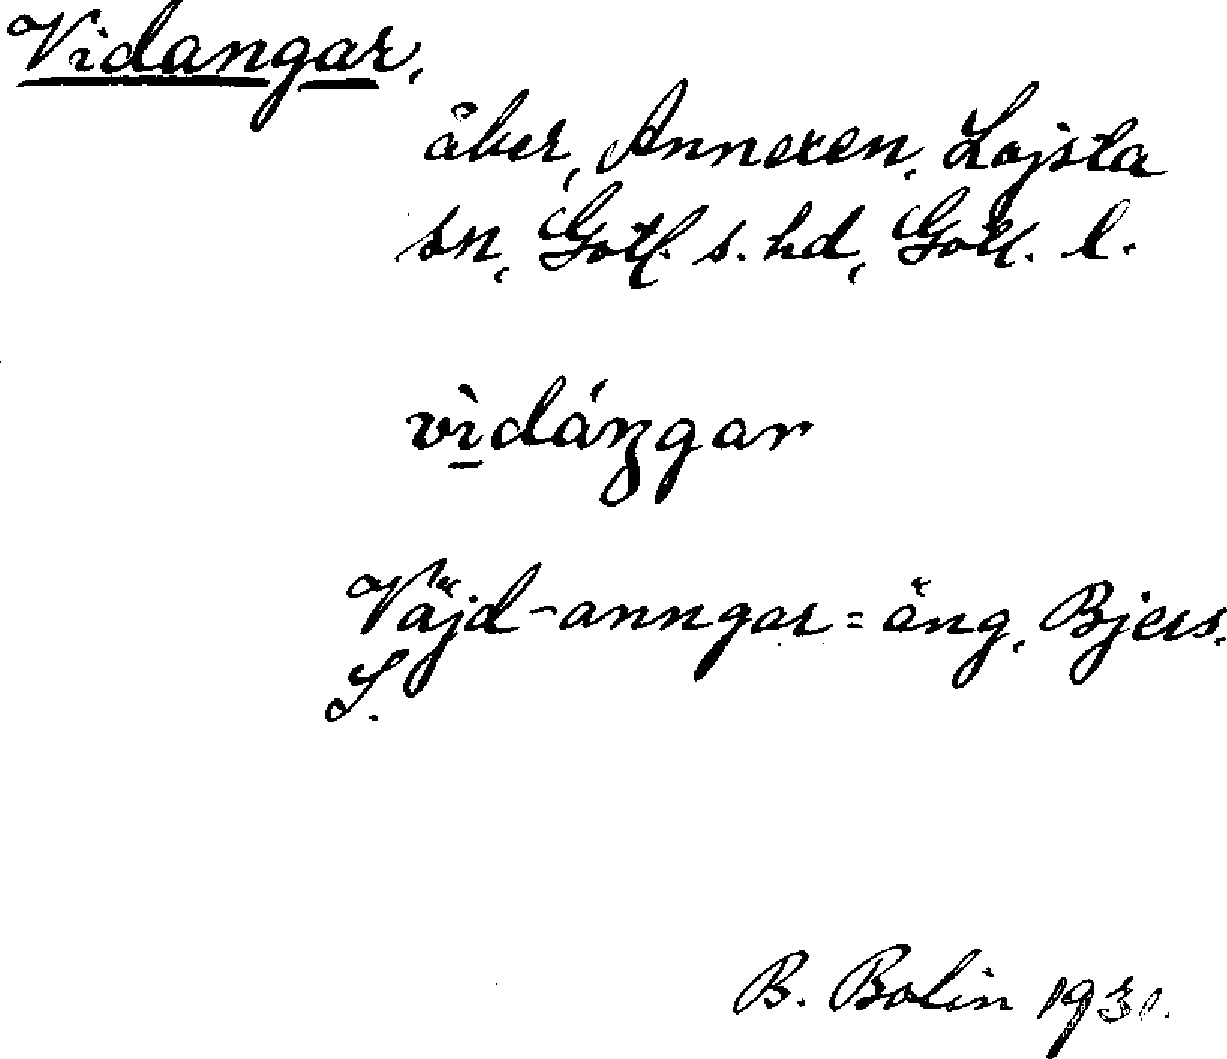 Vidangar,
åker, Annexen, Lojsta
sn, Gotl. s. hd, Gotl. l.
vìdáŋgar
Väjd-anngar = äng, Bjers.
S.
B. Bolin 1931.